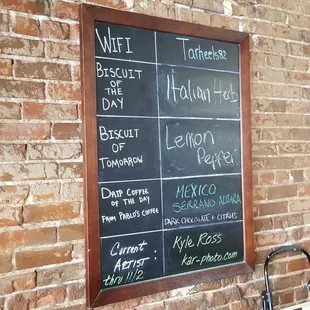 WIFI
Tarheels82
BISCUIT
OF THE
DAY
Italian Herb
BISCUIT
OF
TOMORROW
Lemon
Pepper
DRIP COFFEE
OF THE DAY
FROM PABLO'S COFFEE
MEXICO
SERRANO ALTURA
DARK CHOCOLATE + CITRUS
Current
ARTIST
thru 11/2
Kyle Ross
kar-photo.com